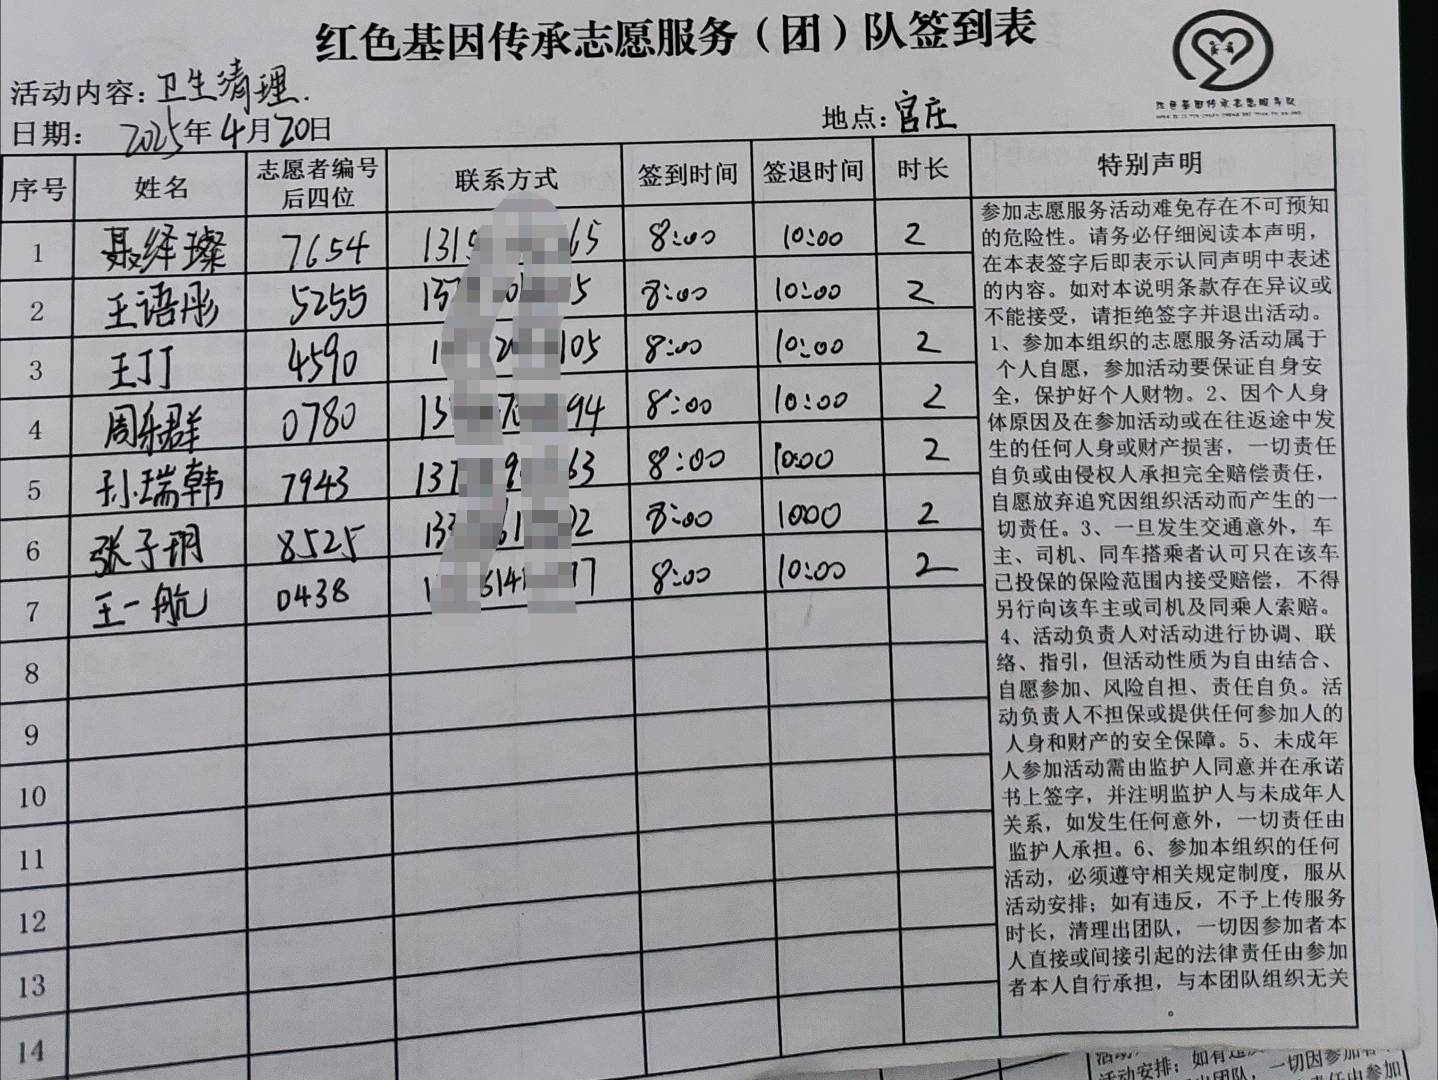 红色基因传承志愿服务（团）队签到表
活动内容：卫生清理.
日期： 2025年4月20日
地点：官庄
红色基因传承志愿服务队
序号 姓名 志愿者编号后四位 联系方式 签到时间 签退时间 时长 特别声明
1 聂绎璨 7654 8:00 10:00 2
2 王语彤 5255 8:00 10:00 2
3 王丁 4590 8:00 10:00 2
4 周乐群 0780 8:00 10:00 2
5 孙瑞韩 7943 8:00 10:00 2
6 张子玥 8525 8:00 1000 2
7 王一航 0438 8:00 10:00 2
8
9
10
11
12
13
14
参加志愿服务活动难免存在不可预知
的危险性。请务必仔细阅读本声明，
在本表签字后即表示认同声明中表述
的内容。如对本说明条款存在异议或
不能接受，请拒绝签字并退出活动。
1、参加本组织的志愿服务活动属于
个人自愿，参加活动要保证自身安
全，保护好个人财物。2、因个人身
体原因及在参加活动或在往返途中发
生的任何人身或财产损害，一切责任
自负或由侵权人承担完全赔偿责任，
自愿放弃追究因组织活动而产生的一
切责任。3、一旦发生交通意外，车
主、司机、同车搭乘者认可只在该车
已投保的保险范围内接受赔偿，不得
另行向该车主或司机及同乘人索赔。
4、活动负责人对活动进行协调、联
络、指引，但活动性质为自由结合、
自愿参加、风险自担、责任自负。活
动负责人不担保或提供任何参加人的
人身和财产的安全保障。5、未成年
人参加活动需由监护人同意并在承诺
书上签字，并注明监护人与未成年人
关系，如发生任何意外，一切责任由
监护人承担。6、参加本组织的任何
活动，必须遵守相关规定制度，服从
活动安排；如有违反，不予上传服务
时长，清理出团队，一切因参加者本
人直接或间接引起的法律责任由参加
者本人自行承担，与本团队组织无关
。